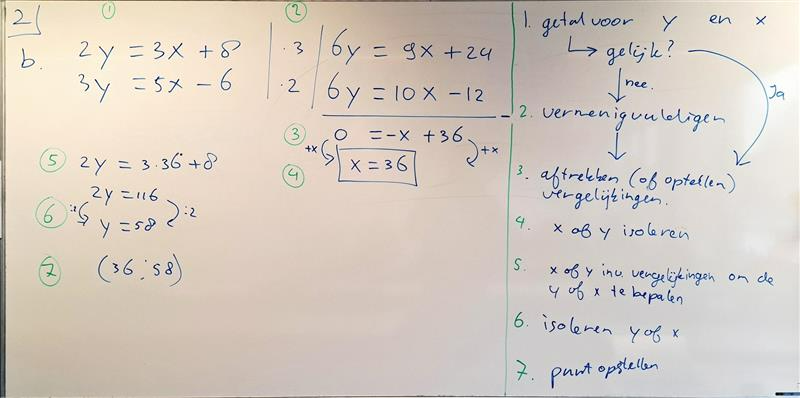 2
b.
①
2y = 3x + 8 | ·3
3y = 5x - 6 | ·2
②
6y = 9x + 24
6y = 10x - 12
-
③ 0 = -x + 36
+x +x
④ x = 36
⑤ 2y = 3·36 + 8
2y = 116
:2 :2
⑥ y = 58
⑦ (36 ; 58)
1. getal voor y en x
gelijk?
nee.
Ja
2. vermenigvuldigen
3. aftrekken (of optellen)
vergelijkingen.
4. x of y isoleren
5. x of y inv. vergelijkingen om de
y of x te bepalen
6. isoleren y of x
7. punt opstellen